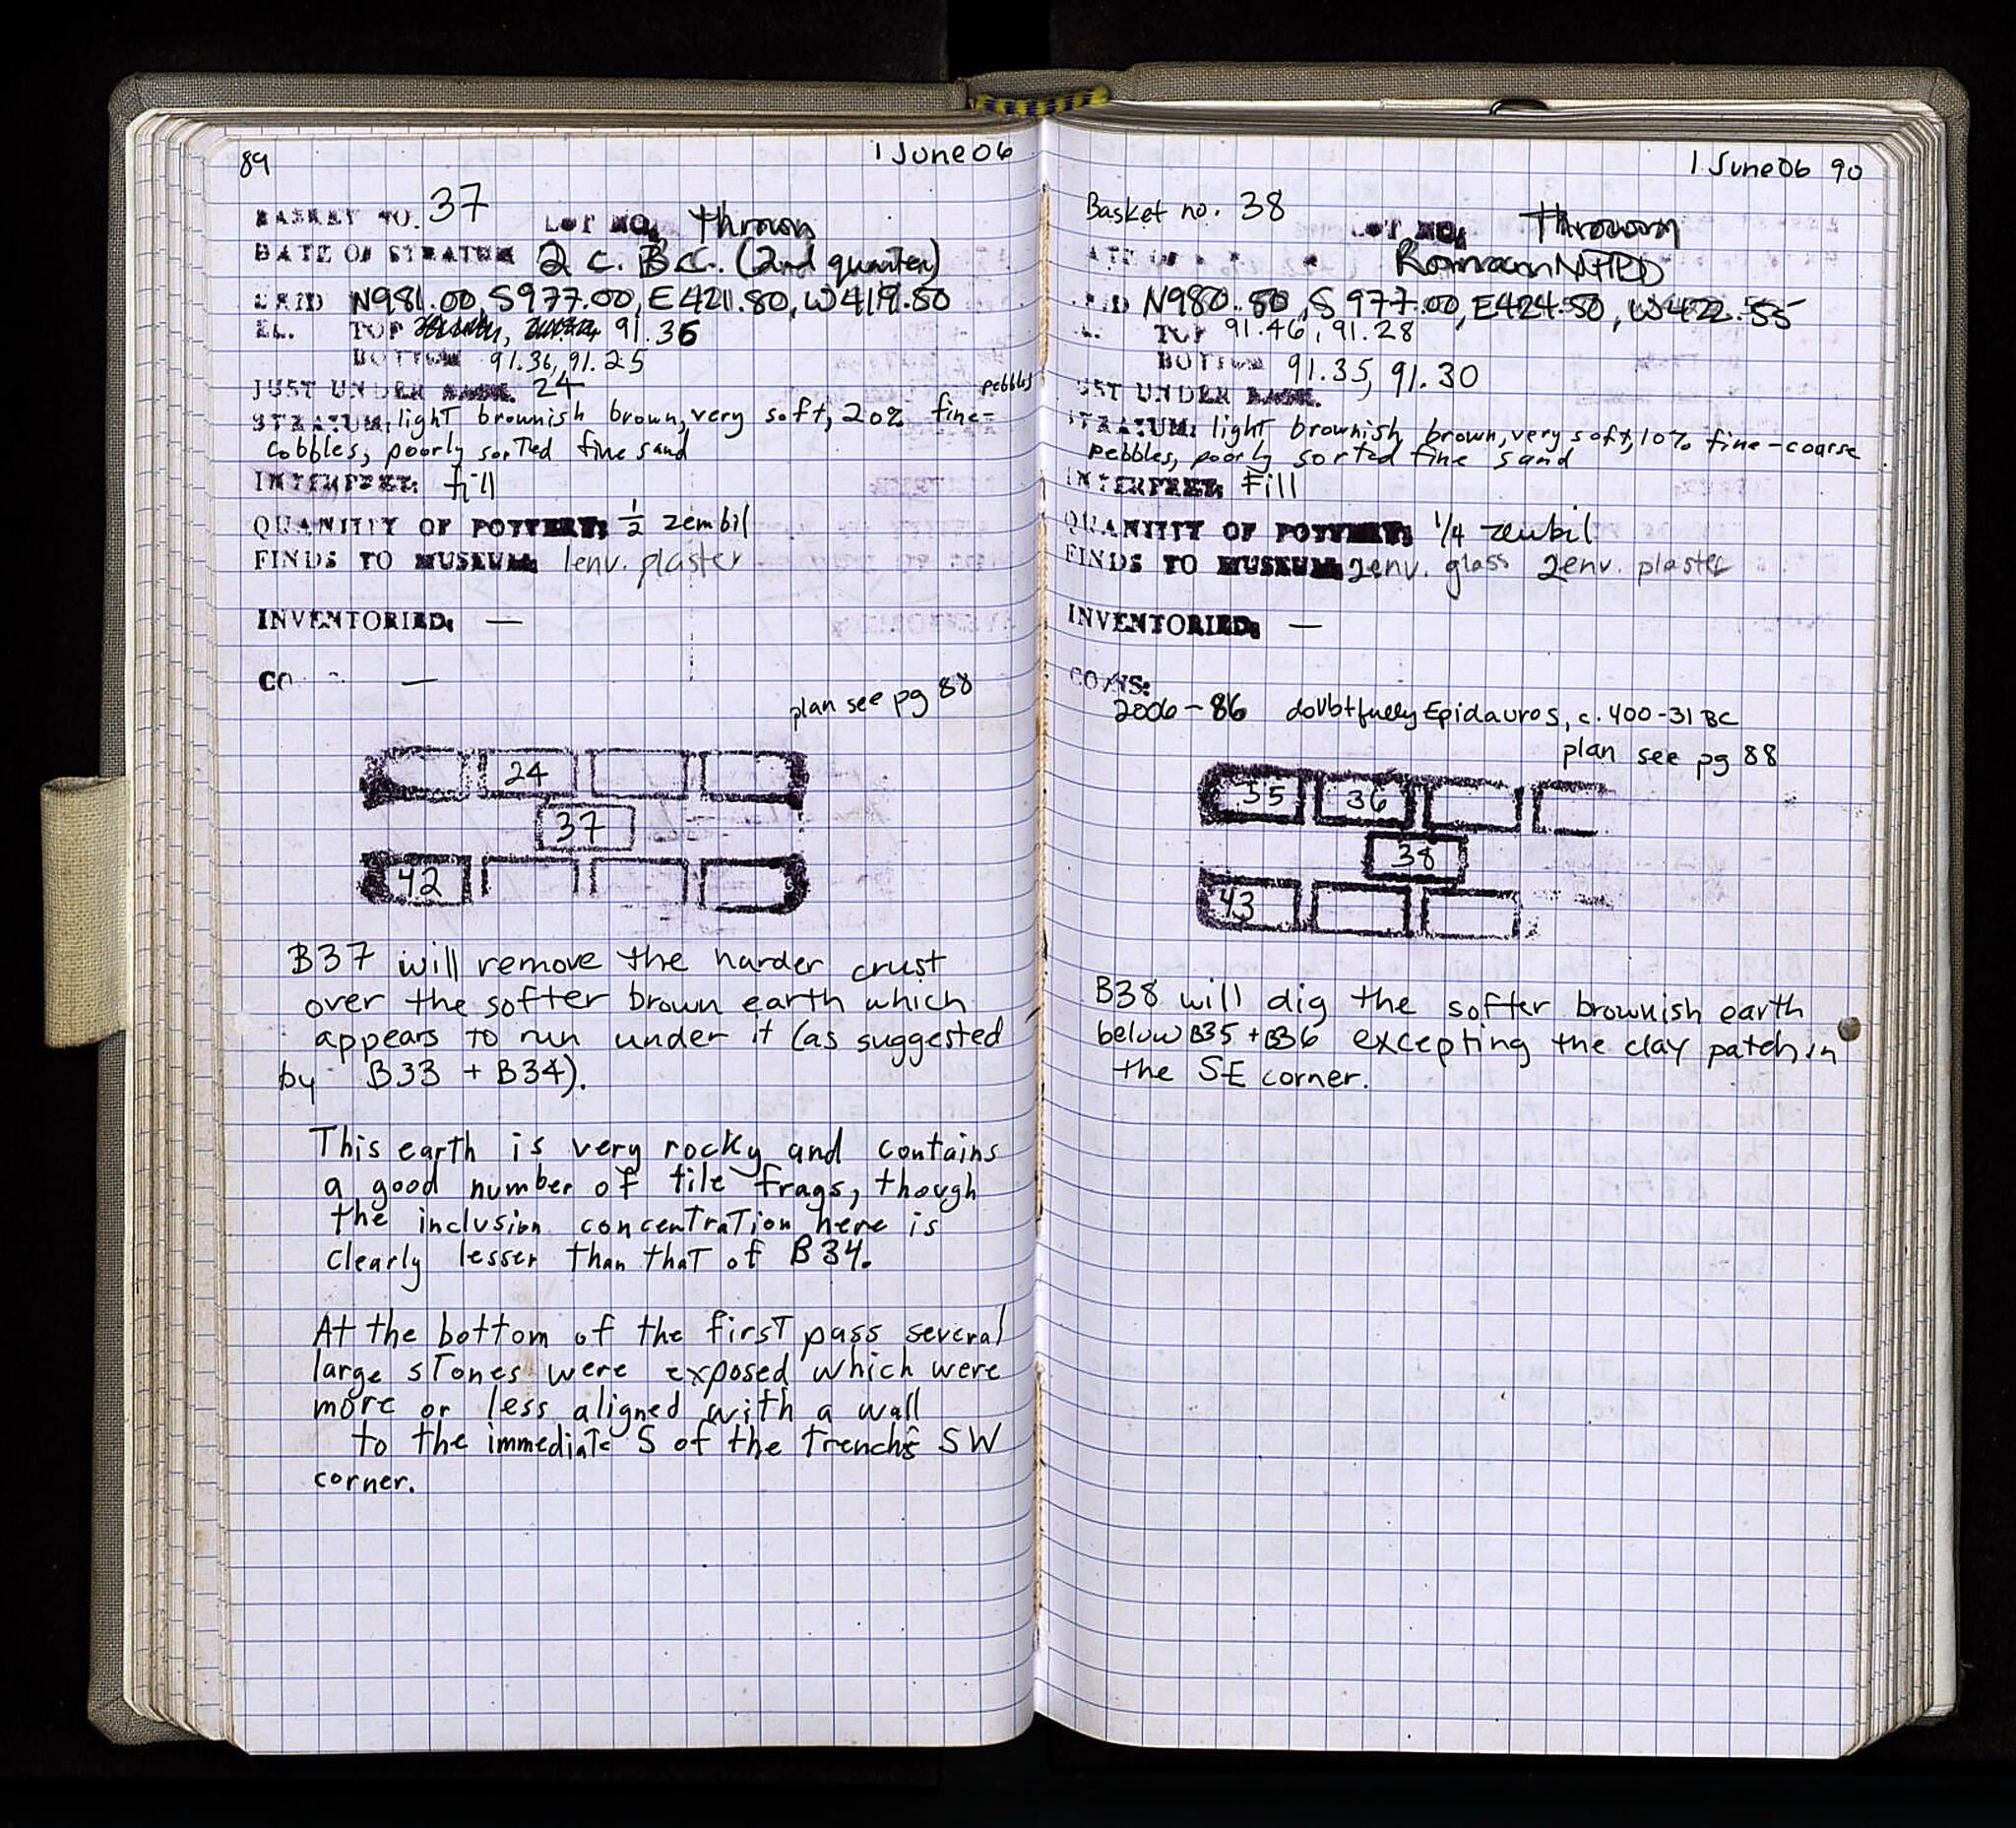 89
1 June 06
BASKET NO. 37 LOT NO. Thrown
DATE OF STRATUM 2 c. B.C. (2nd quarter)
GRID N981.00, S977.00, E421.80, W419.50
EL. TOP 91.36
BOTTOM 91.36, 91.25
JUST UNDER BASK. 24
pebbles
STRATUM: light brownish brown, very soft, 20% fine-
cobbles, poorly sorted fine sand
INTERPRET: fill
QUANTITY OF POTTERY: 1/2 zembil
FINDS TO MUSEUM: 1env. plaster
INVENTORIED: —
CO —
plan see pg 88
24
37
42
B37 will remove the harder crust
over the softer brown earth which
appears to run under it (as suggested
by B33 + B34).
This earth is very rocky and contains
a good number of tile frags, though
the inclusion concentration here is
clearly lesser than that of B34.
At the bottom of the first pass several
large stones were exposed which were
more or less aligned with a wall
to the immediate S of the trench's SW
corner.
1 June 06 90
Basket no. 38 LOT NO. Thrown
Roman NTPD
N980.50, S977.00, E424.50, W422.55
TOP 91.46, 91.28
BOTTOM 91.35, 91.30
JUST UNDER BASK.
STRATUM: light brownish brown, very soft, 10% fine-coarse
pebbles, poorly sorted fine sand
INTERPRET: Fill
QUANTITY OF POTTERY: 1/4 zembil
FINDS TO MUSEUM: 2env. glass 2env. plaster
INVENTORIED: —
COINS:
2006-86 doubtfully Epidauros, c. 400-31 BC
plan see pg 88
35 36
38
43
B38 will dig the softer brownish earth
below B35 + B36 excepting the clay patch in
the SE corner.